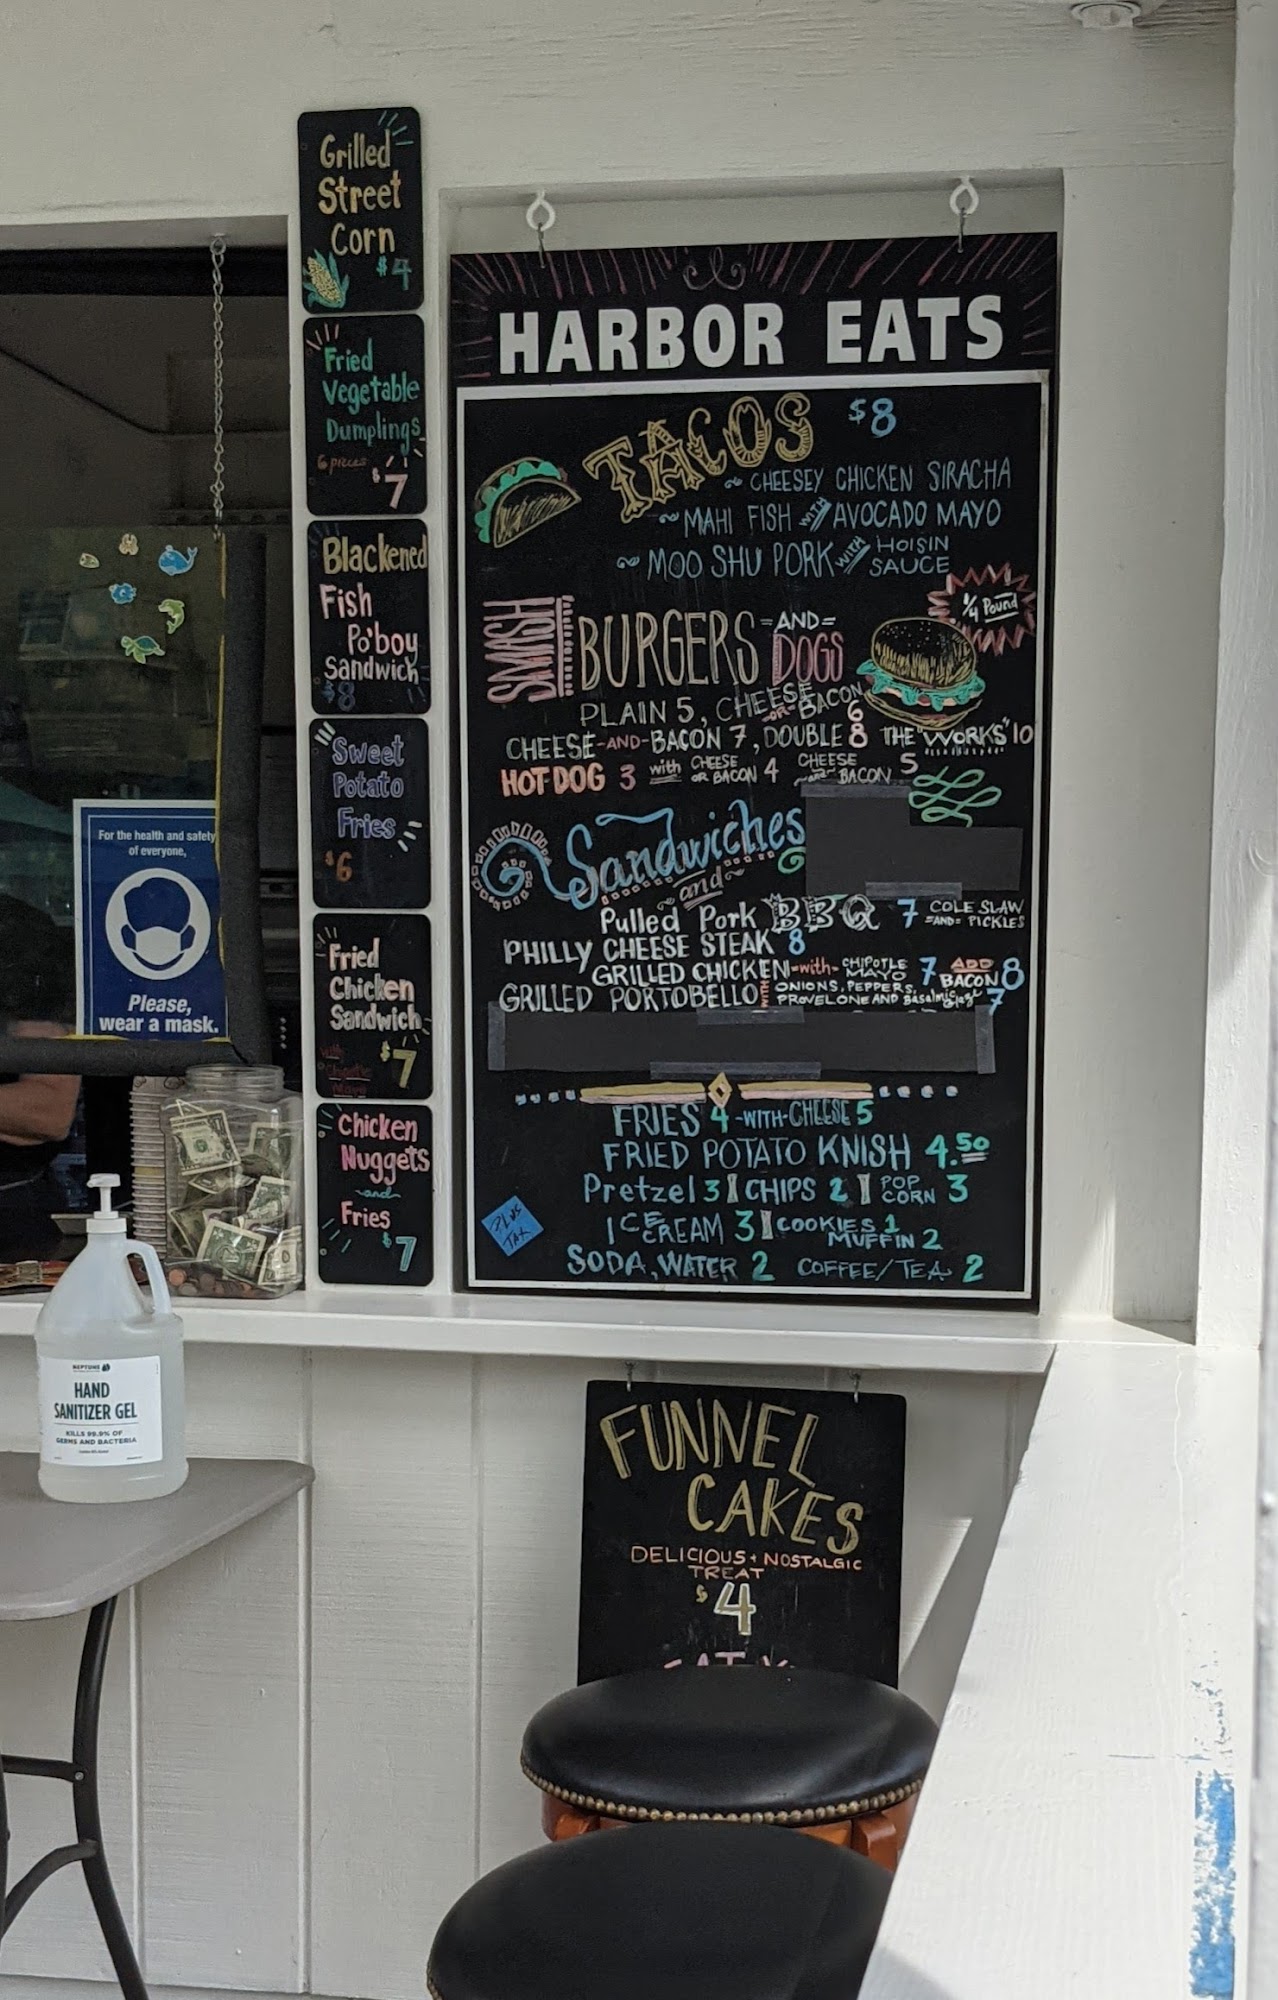 Grilled
Street
Corn
$4
Fried
Vegetable
Dumplings
6 pieces
$7
Blackened
Fish
Po'boy
Sandwich
$8
Sweet
Potato
Fries
$6
Fried
Chicken
Sandwich
with
Chipotle
Mayo
$7
Chicken
Nuggets
and
Fries
$7
HARBOR EATS
TACOS $8
~ CHEESEY CHICKEN SIRACHA
~ MAHI FISH WITH AVOCADO MAYO
~ MOO SHU PORK WITH HOISIN SAUCE
SMASH BURGERS =AND= DOGS
1/4 Pound
PLAIN 5, CHEESE -OR- BACON 6
CHEESE-AND-BACON 7, DOUBLE 8 THE "WORKS" 10
HOT DOG 3 with CHEESE OR BACON 4 CHEESE AND BACON 5
Sandwiches
~and~
Pulled Pork BBQ 7 COLE SLAW =AND= PICKLES
PHILLY CHEESE STEAK 8
GRILLED CHICKEN-with-CHIPOTLE MAYO 7 ADD BACON 8
GRILLED PORTOBELLO WITH ONIONS, PEPPERS, PROVELONE AND Basalmic glaze 7
FRIES 4 -WITH-CHEESE 5
FRIED POTATO KNISH 4.50
Pretzel 3 | CHIPS 2 | POP CORN 3
ICE CREAM 3 | COOKIES 1 MUFFIN 2
SODA, WATER 2 COFFEE/TEA 2
PLUS
TAX
For the health and safety
of everyone,
Please,
wear a mask.
NEPTUNE
HAND
SANITIZER GEL
KILLS 99.9% OF
GERMS AND BACTERIA
FUNNEL
CAKES
DELICIOUS + NOSTALGIC
TREAT
$4